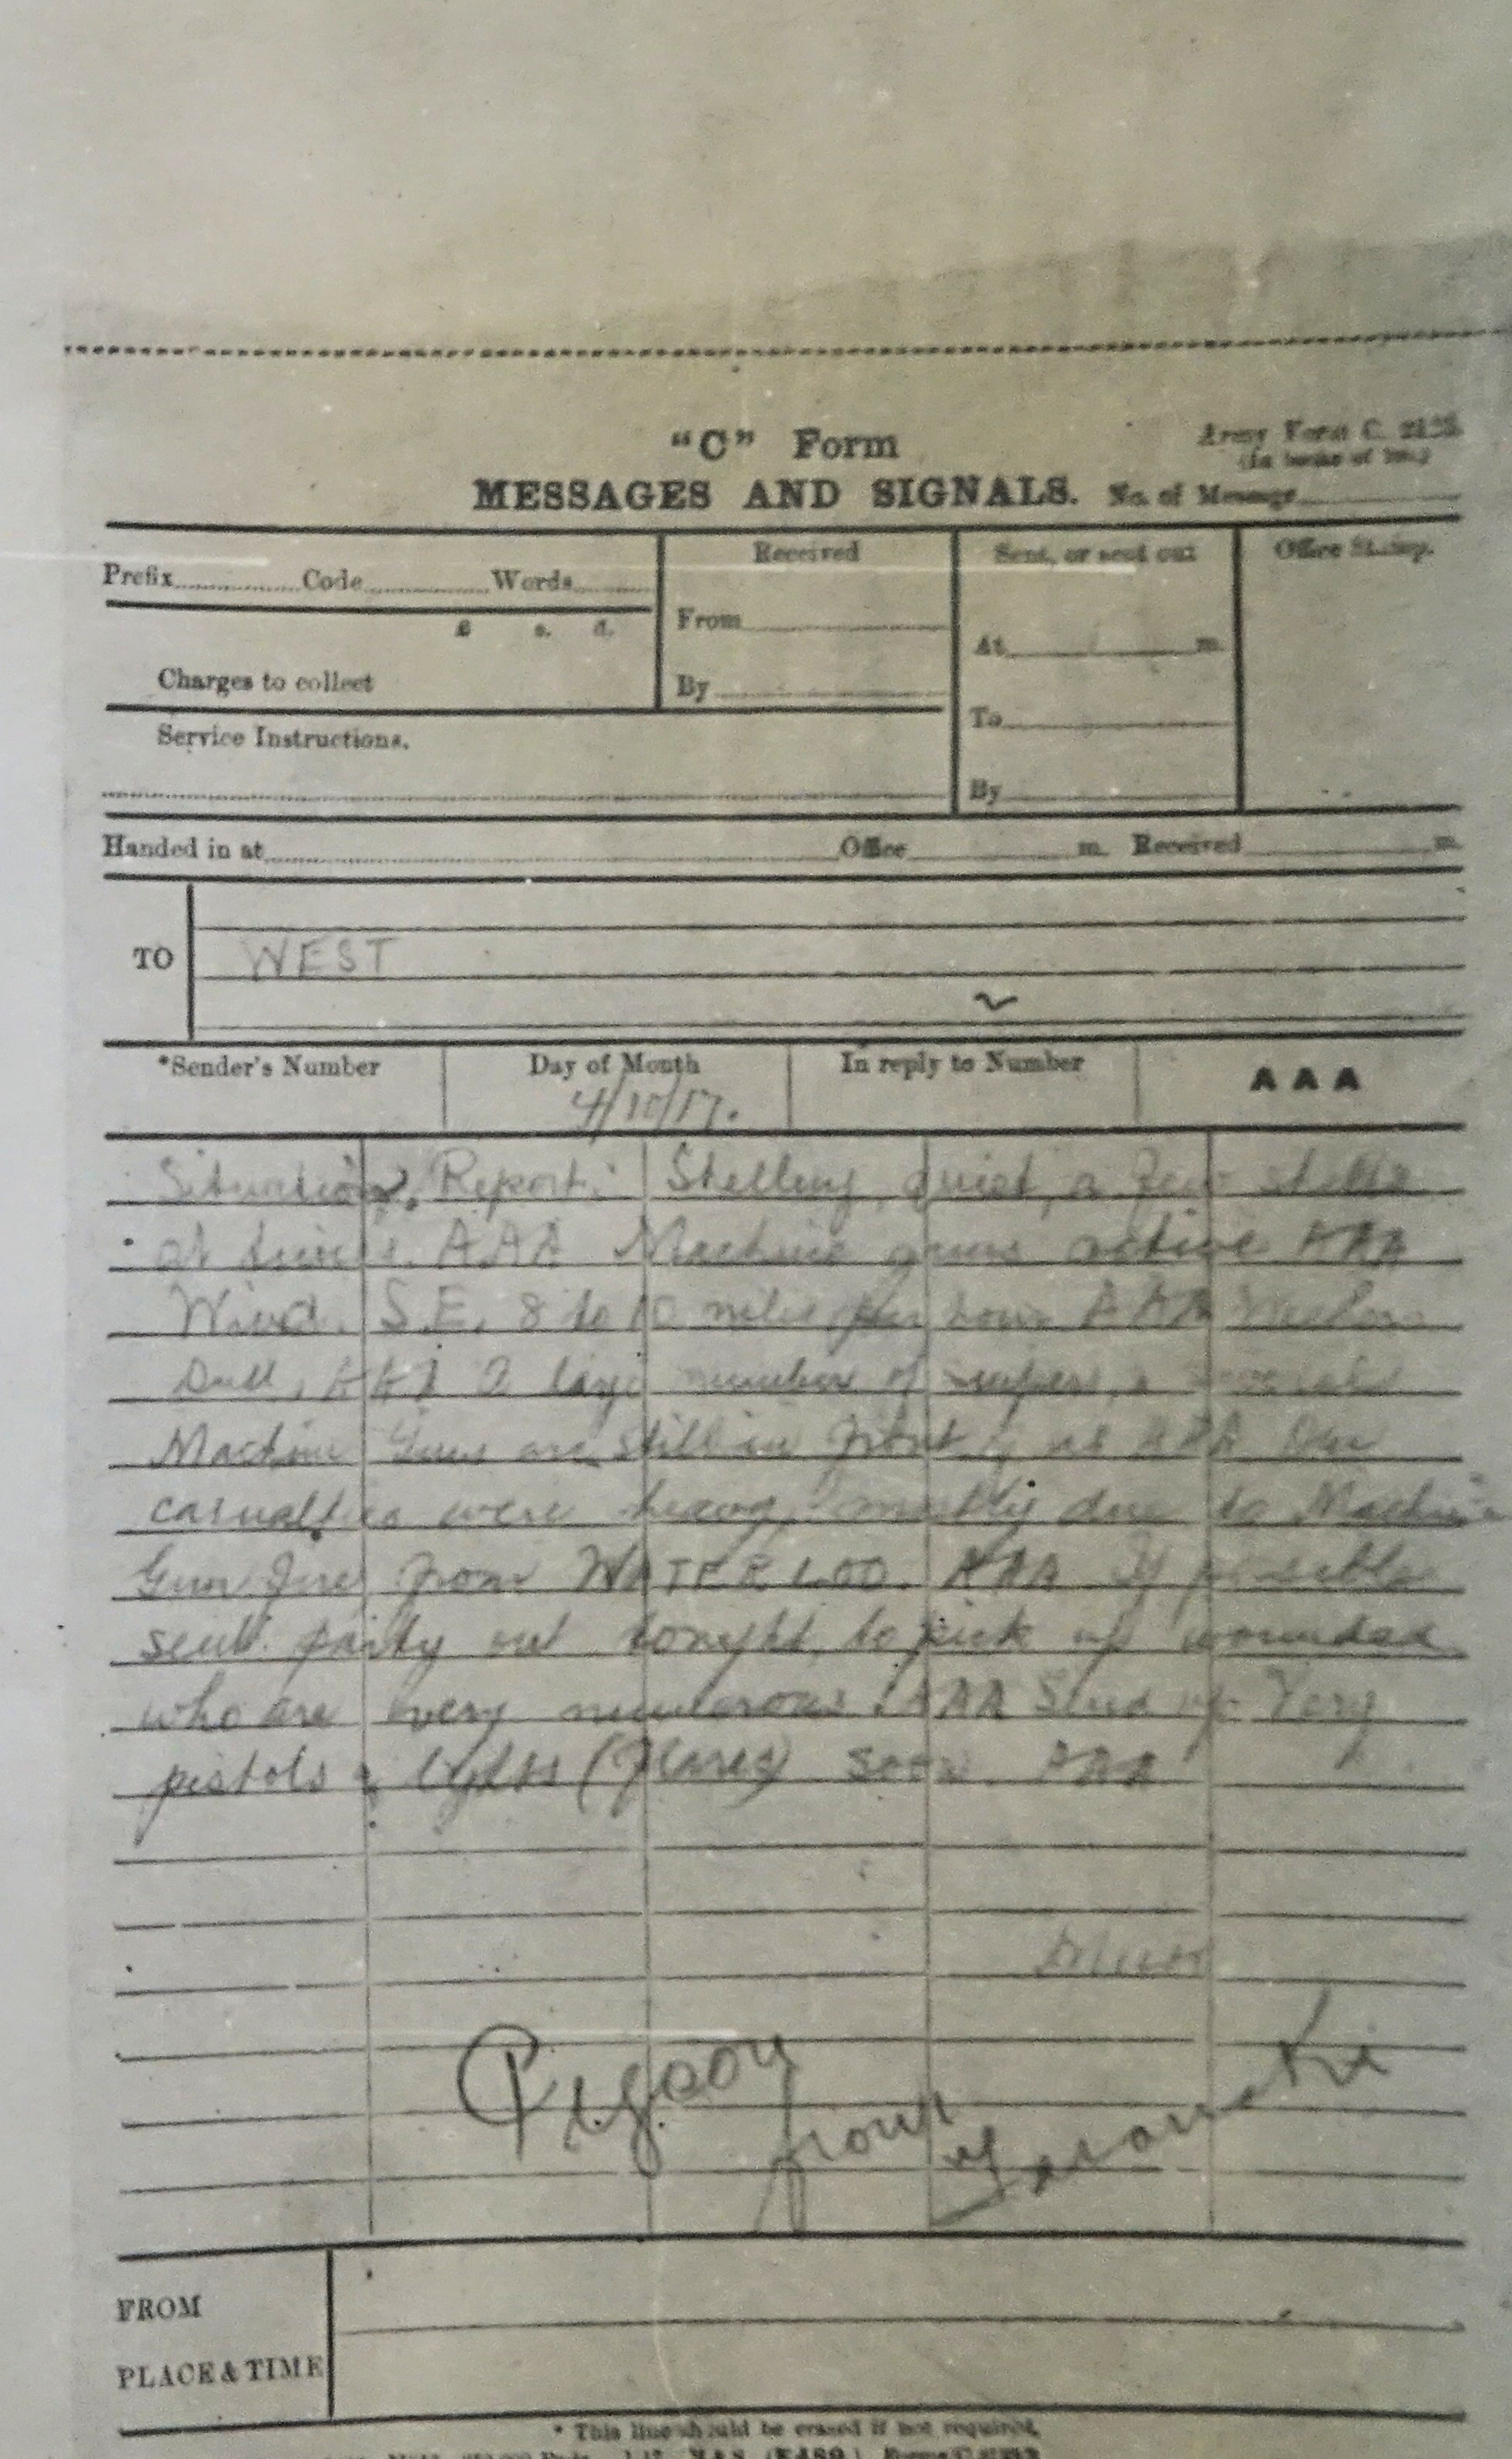 "C" Form
Army Form C. 2123.
(In books of 100.)
MESSAGES AND SIGNALS. No. of Message
Prefix Code Words
Received
Sent, or sent out
Office Stamp.
£ s. d.
From
At m.
Charges to collect
By
To
Service Instructions.
By
Handed in at Office m. Received m.
TO WEST
*Sender's Number Day of Month In reply to Number AAA
4/10/17.
Situation Report. Shelling, quiet, a few shells
at times. AAA Machine guns active AAA
Wind. S.E. 8 to 10 miles per hour AAA
Dull, AAA A large number of snipers, & several
Machine Guns are still in front of us AAA Our
casualties were heavy, mostly due to Machine
Gun fire from WATERLOO. AAA If possible
send party out tonight, to pick up wounded
who are very numerous. AAA Send up Very
pistols & lights (flares) soon AAA
Pigeon
from
FROM
PLACE & TIME
* This line should be erased if not required.